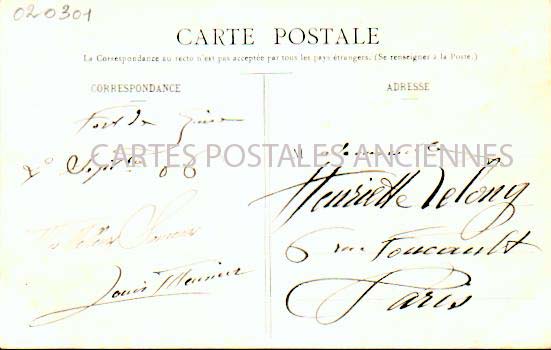 020301
CARTE POSTALE
La Correspondance au recto n'est pas acceptée par tous les pays étrangers. (Se renseigner à la Poste.)
CORRESPONDANCE
ADRESSE
Fort de
Sept 06
CARTES POSTALES ANCIENNES
Henriette Lelong
6 rue Foucault
Paris
Louis Meunier